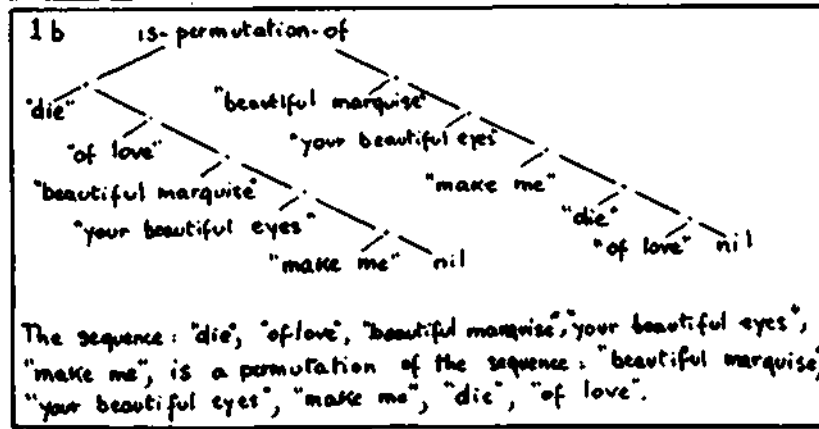 1b is-permutation-of
"die" "beautiful marquise"
"of love" "your beautiful eyes"
"beautiful marquise" "make me"
"your beautiful eyes" "die"
"make me" nil "of love" nil
The sequence: "die", "of love", "beautiful marquise", "your beautiful eyes",
"make me", is a permutation of the sequence: "beautiful marquise",
"your beautiful eyes", "make me", "die", "of love".